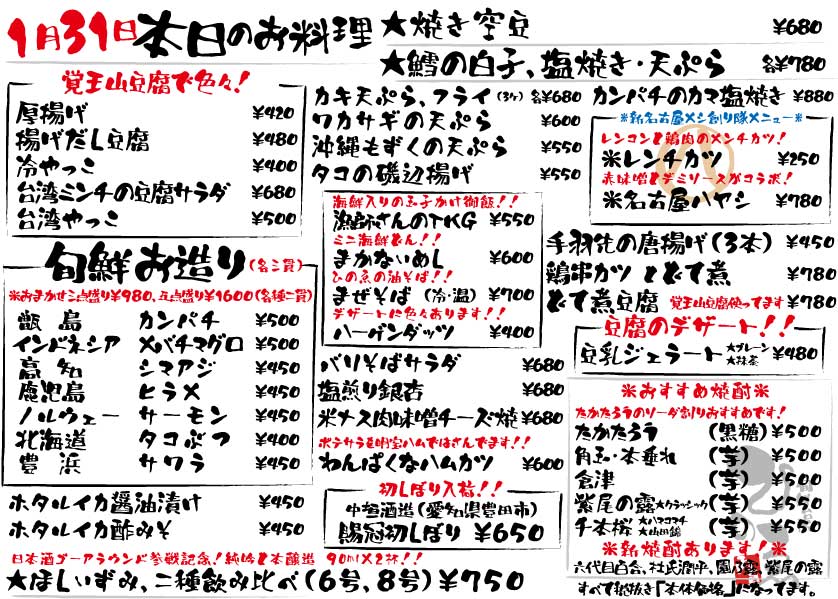 1月31日本日のお料理
★焼き空豆 ¥680
★鱈の白子、塩焼き・天ぷら 各¥780
覚王山豆腐で色々!
厚揚げ ¥420
揚げだし豆腐 ¥480
冷やっこ ¥400
台湾ミンチの豆腐サラダ ¥680
台湾やっこ ¥500
カキ天ぷら、フライ(3ケ) 各¥680
ワカサギの天ぷら ¥600
沖縄もずくの天ぷら ¥550
タコの磯辺揚げ ¥550
カンパチのカマ塩焼き ¥880
※新名古屋メシ創り隊メニュー※
レンコンと鶏肉のメンチカツ!
※レンチカツ ¥250
赤味噌とデミソースがコラボ!
※名古屋ハヤシ ¥780
旬鮮お造り(各二貫)
※おまかせ三点盛り¥980、五点盛り¥1600(各種二貫)
甑島 カンパチ ¥500
インドネシア メバチマグロ ¥500
高知 シマアジ ¥450
鹿児島 ヒラメ ¥450
ノルウェー サーモン ¥450
北海道 タコぶつ ¥400
豊浜 サワラ ¥450
海鮮入りの玉子かけ御飯!!
漁師さんのTKG ¥550
ミニ海鮮どん!!
まかないめし ¥600
ひの魚の油そば!!
まぜそば(冷・温) ¥700
デザートに色々あります!!
ハーゲンダッツ ¥400
手羽先の唐揚げ(3本) ¥450
鶏串カツ とどて煮 ¥780
どて煮豆腐 覚王山豆腐使ってます ¥780
豆腐のデザート!!
豆乳ジェラート ★プレーン ★抹茶 ¥480
バリそばサラダ ¥680
塩煎り銀杏 ¥680
米ナス肉味噌チーズ焼 ¥680
ポテサラを明宝ハムではさんでます!!
わんぱくなハムカツ ¥600
※おすすめ焼酎※
たかたろうのソーダ割りおすすめです!
たかたろう (黒糖) ¥500
角玉・本垂れ (芋) ¥500
倉津 (芋) ¥500
紫尾の露★クラッシック(芋) ¥550
千本桜 ★ハマコマチ ★山田錦 (芋) ¥550
※新焼酎あります!※
六代目百合、杜氏潤平、園乃露、紫尾の露
すべて税抜き「本体価格」になってます。
ホタルイカ醤油漬け ¥450
ホタルイカ酢みそ ¥450
初しぼり入荷!!
中垣酒造(愛知県豊田市)
賜冠初しぼり ¥650
日本酒ゴーアラウンド参戦記念!純吟と本醸造 90ml×2杯!!
★ほしいずみ、二種飲み比べ(6号、8号)¥750